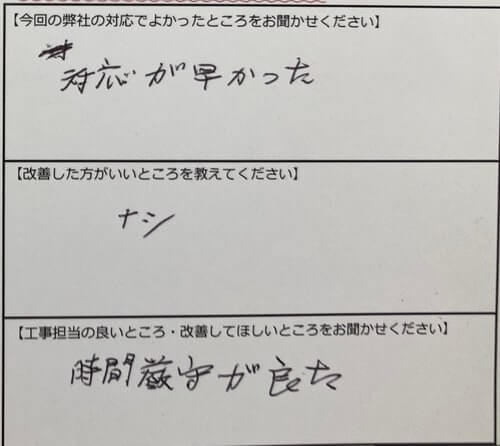 【今回の弊社の対応でよかったところをお聞かせください】
対応が早かった
【改善した方がいいところを教えてください】
ナシ
【工事担当の良いところ・改善してほしいところをお聞かせください】
時間厳守が良た